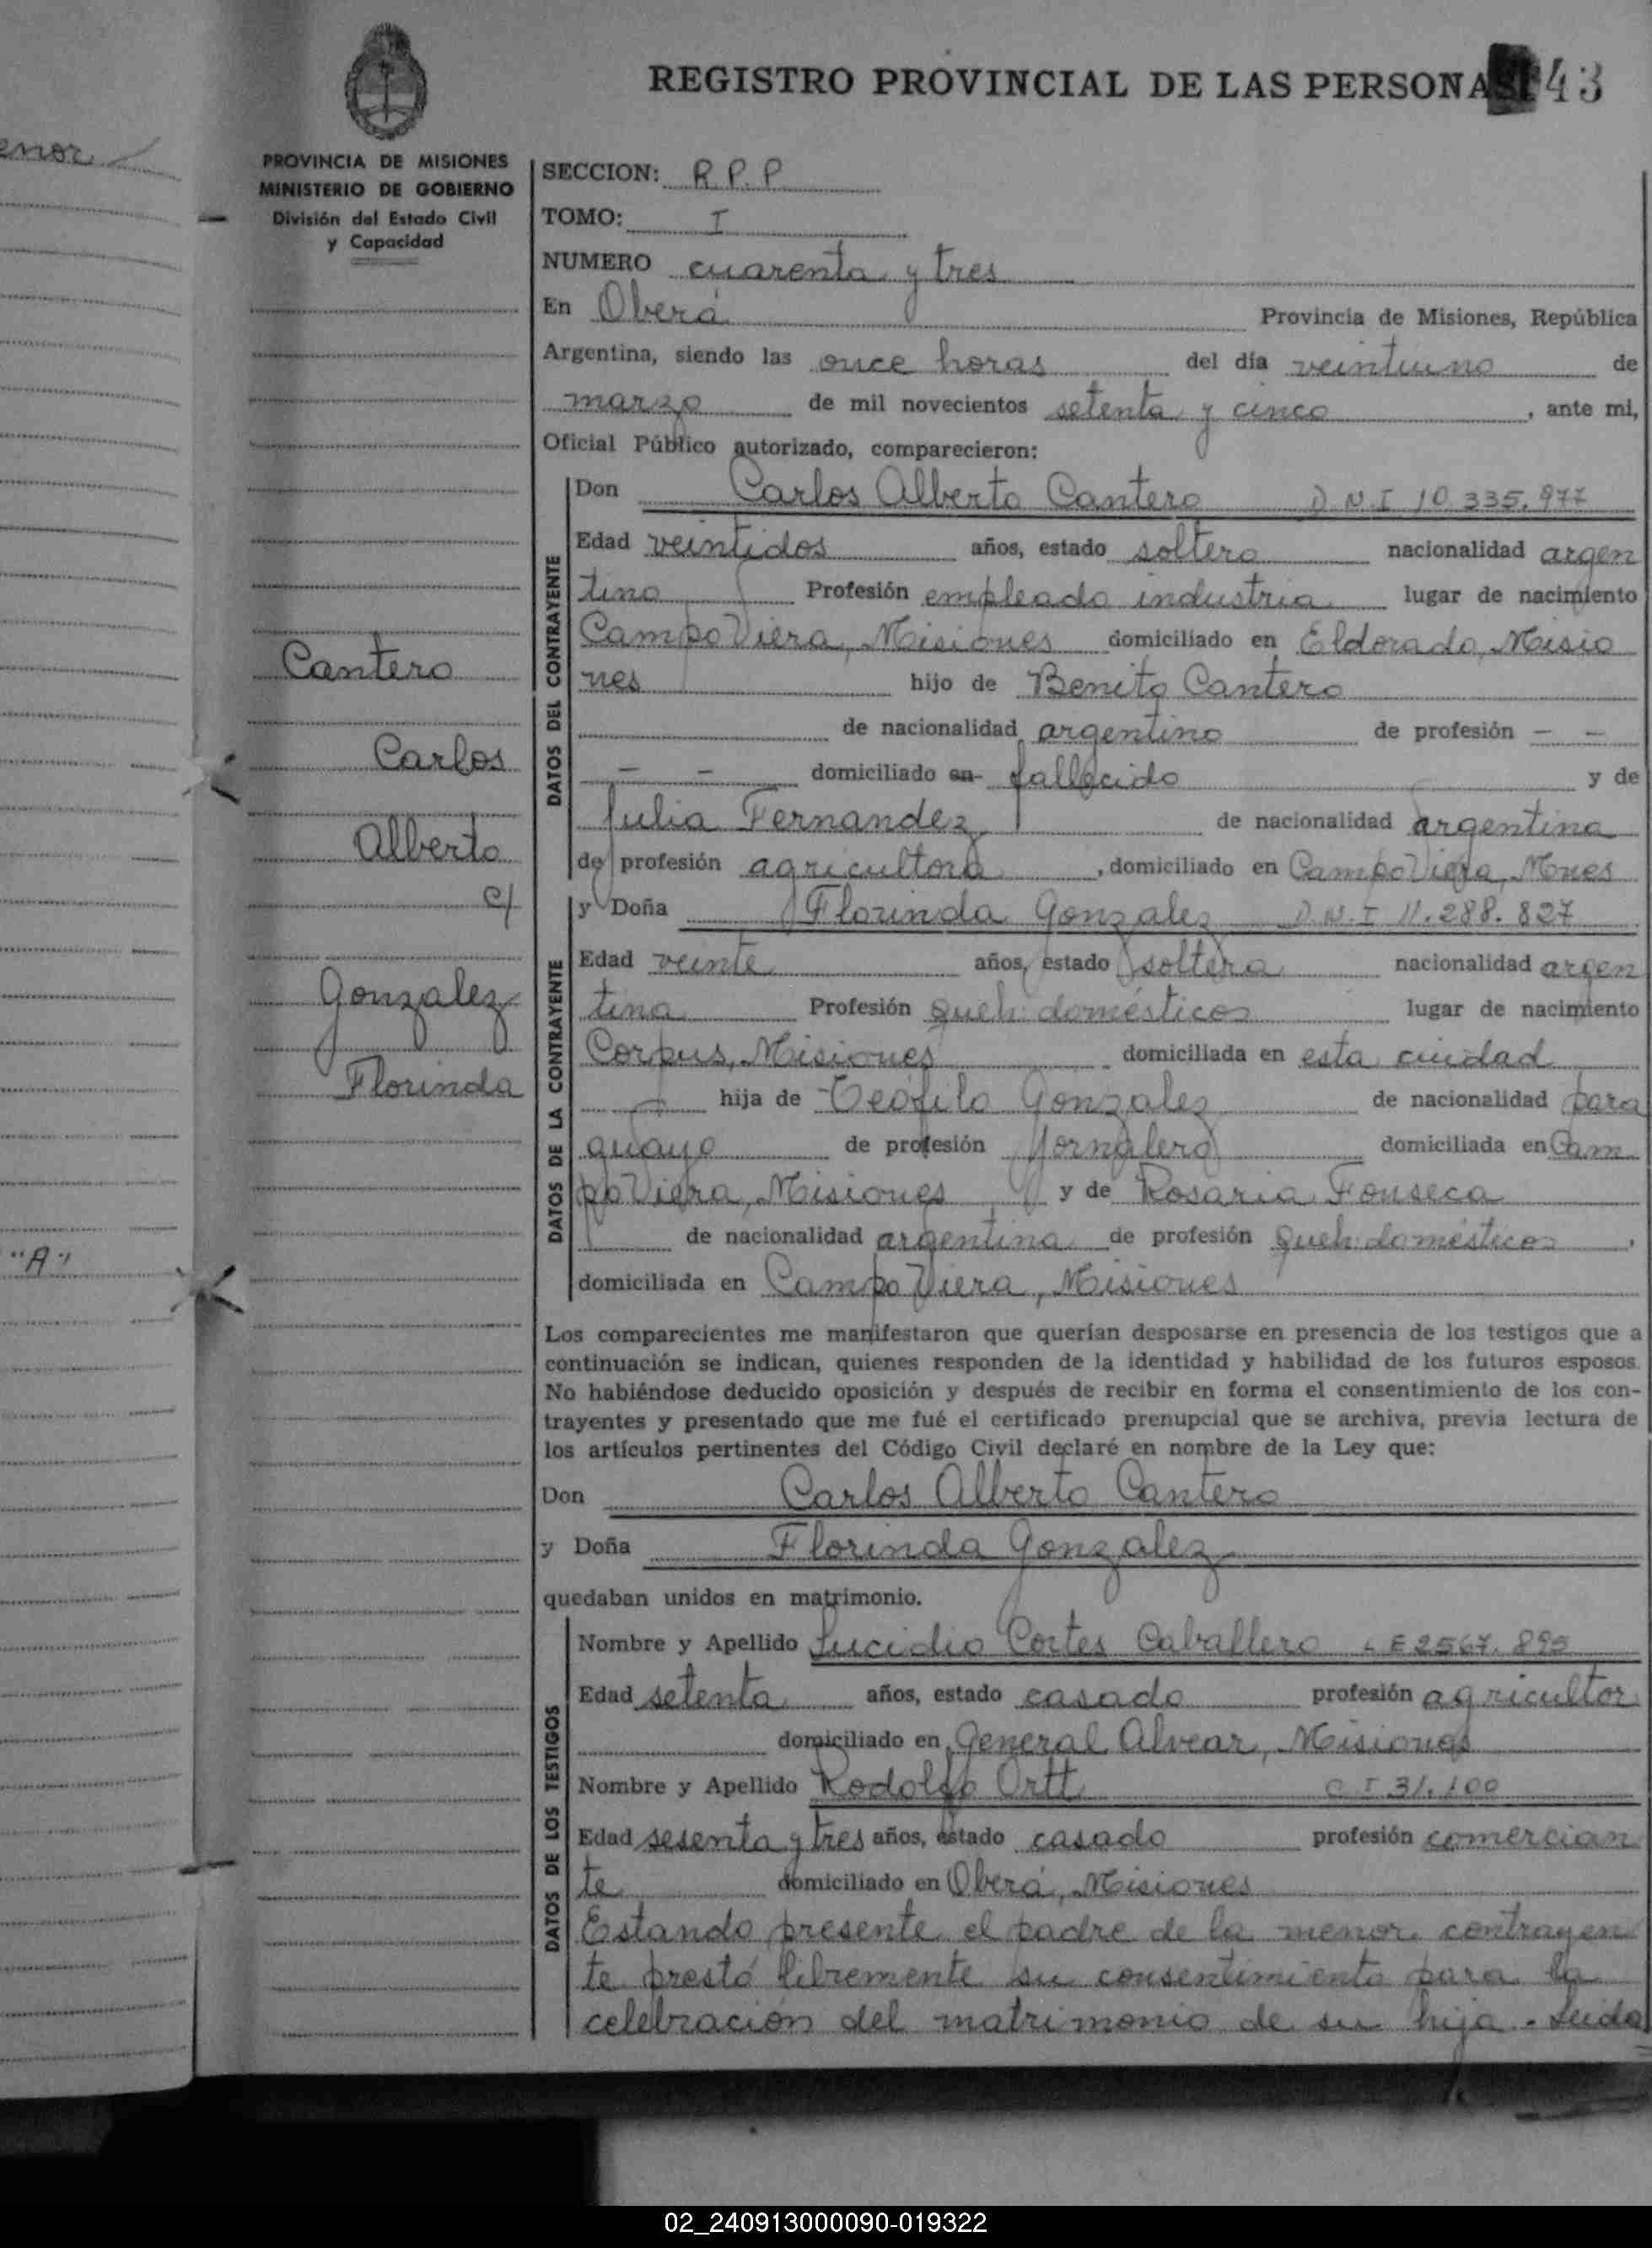 REGISTRO PROVINCIAL DE LAS PERSONAS 43
enor
PROVINCIA DE MISIONES
MINISTERIO DE GOBIERNO
División del Estado Civil
y Capacidad
SECCION: R.P.P
TOMO: I
NUMERO cuarenta y tres
En Oberá Provincia de Misiones, República
Argentina, siendo las once horas del día veintiuno de
marzo de mil novecientos setenta y cinco, ante mi,
Oficial Público autorizado, comparecieron:
DATOS DEL CONTRAYENTE
Don Carlos Alberto Cantero D.N.I 10.335.977
Edad veintidos años, estado soltero nacionalidad argen
tino Profesión empleado industria lugar de nacimiento
Campo Viera, Misiones domiciliado en Eldorado, Misio
nes hijo de Benito Cantero
de nacionalidad argentino de profesión - -
- - domiciliado en- fallecido y de
Julia Fernandez de nacionalidad argentina
de profesión agricultora, domiciliado en Campo Viera, Mnes
Cantero
Carlos
Alberto
c/
Gonzalez
Florinda
DATOS DE LA CONTRAYENTE
y Doña Florinda Gonzalez D.N.I 11.288.827
Edad veinte años, estado soltera nacionalidad argen
tina Profesión queh. domésticos lugar de nacimiento
Corpus, Misiones domiciliada en esta ciudad
hija de Teófilo Gonzalez de nacionalidad para
guayo de profesión Jornalero domiciliada en Cam
po Viera, Misiones y de Rosaria Fonseca
de nacionalidad argentina de profesión queh. domésticos,
domiciliada en Campo Viera, Misiones
"A"
Los comparecientes me manifestaron que querían desposarse en presencia de los testigos que a
continuación se indican, quienes responden de la identidad y habilidad de los futuros esposos.
No habiéndose deducido oposición y después de recibir en forma el consentimiento de los con-
trayentes y presentado que me fué el certificado prenupcial que se archiva, previa lectura de
los artículos pertinentes del Código Civil declaré en nombre de la Ley que:
Don Carlos Alberto Cantero
y Doña Florinda Gonzalez
quedaban unidos en matrimonio.
DATOS DE LOS TESTIGOS
Nombre y Apellido Lucidio Cortes Caballero L E 2567.895
Edad setenta años, estado casado profesión agricultor
domiciliado en General Alvear, Misiones
Nombre y Apellido Rodolfo Ortt C I 31.100
Edad sesenta y tres años, estado casado profesión comercian
te domiciliado en Oberá, Misiones
Estando presente el padre de la menor contrayen
te prestó libremente su consentimiento para la
celebración del matrimonio de su hija. Leida
02_240913000090-019322